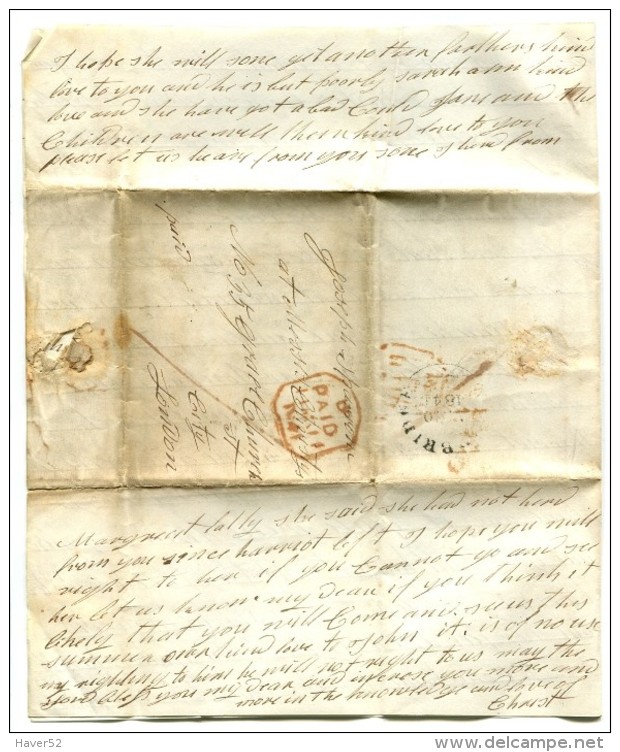 I hope she will sone get another farthers kind
love to you and he is but poorly sarah ann kind
love and she have got a bad Could Jane and the
Children are well their kind love to you
please let us heair from you sone I herd from
Joseph
at
No 35 Great
St
City
London
paid
PAID
BRIDGE
Margreet Lally she said she had not herd
from you since harriot left I hope you will
right to her if you Cannot go and see
her let us know my dear if you think it
likely that you will Come and see us this
summer our kind love to John it is of no use
my righting to him he will not right to us may the
Lord bless you my dear and increse you more and
more in the knowledge and love of
Christ
Haver52
www.delcampe.net